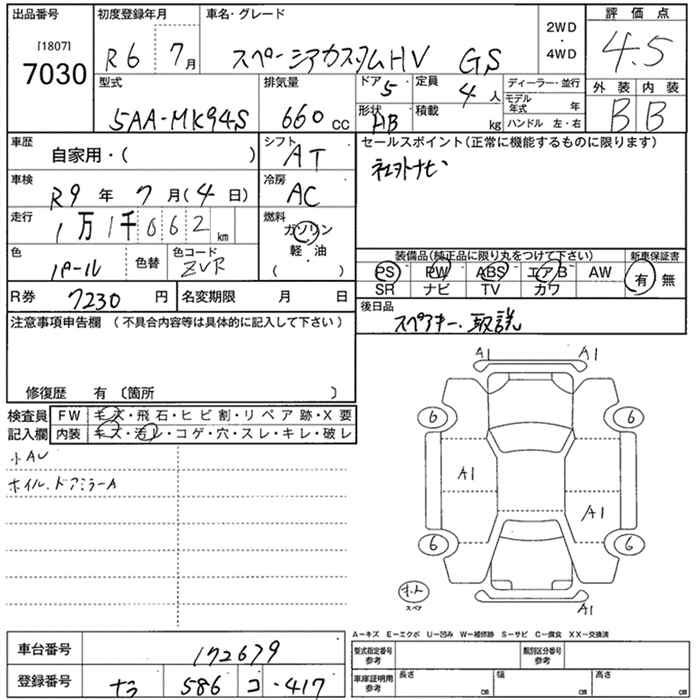 出品番号 初度登録年月 車名・グレード 評価点
[1807] 7030 R6 7月 スペーシアカスタムHV GS 2WD・4WD 4.5
型式 排気量 ドア 5 定員 4人 ディーラー・並行 外装 内装
5AA-MK94S 660cc 形状 HB 積載 kg モデル年式 年 ハンドル 左・右 B B
車歴 自家用・( ) シフト AT セールスポイント(正常に機能するものに限ります)
車検 R9年7月(4日) 冷房 AC 社外ナビ
走行 1万1千062km 燃料 ガソリン
軽・油
( ・ )
色 パール 色替 色コード ZVR
装備品(純正品に限り丸をつけて下さい) 新車保証書
PS PW ABS エアB AW 有・無
SR ナビ TV カワ
R券 7230円 名変期限 月 日
後日品
スペアキー、取説
注意事項申告欄 (不具合内容等は具体的に記入して下さい)
修復歴 有 〔箇所 〕
検査員 FW キズ・飛石・ヒビ割・リペア跡・X要
記入欄 内装 キズ・汚レ・コゲ・穴・スレ・キレ・破レ
小AU
ホイル、ドアミラーA
A1 A1
6 6
A1
A1
6 6
スペア
A1
A-キズ E-エクボ U-凹み W-補修跡 S-サビ C-腐食 XX-交換済
車台番号 172679 型式指定番号 参考 類別区分番号 参考
登録番号 ナラ 586 コ ・417 車庫証明用 参考 長さ cm 幅 cm 高さ cm